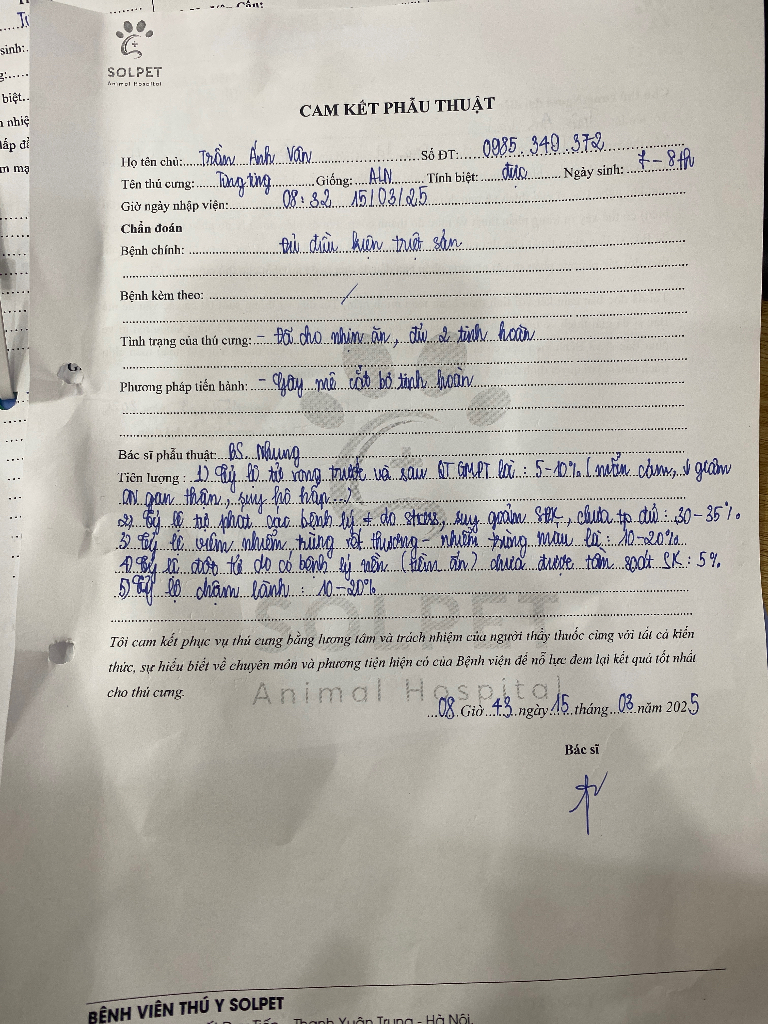 SOLPET
Animal Hospital
CAM KẾT PHẪU THUẬT
Họ tên chủ: Trần Ánh Vân Số ĐT: 0985.349.372
Tên thú cưng: Tưng tưng Giống: ALN Tính biệt: đực Ngày sinh: 7-8th
Giờ ngày nhập viện: 08:32 15/03/25
Chẩn đoán
Bệnh chính: Đủ điều kiện triệt sản
Bệnh kèm theo: /
Tình trạng của thú cưng: - Đã cho nhịn ăn, đủ 2 tinh hoàn
Phương pháp tiến hành: - Gây mê cắt bỏ tinh hoàn
Bác sĩ phẫu thuật: BS. Nhung
Tiên lượng: 1) Tỷ lệ tử vong trước và sau QT GMPT là: 5-10% (mẫn cảm, ↓ giảm
CN gan thận, suy hô hấp...)
2) Tỷ lệ tự phát các bệnh lý + do stress, suy giảm SĐK, chưa tp đủ: 30-35%
3) Tỷ lệ viêm nhiễm, trùng vết thương - nhiễm trùng máu là: 10-20%
4) Tỷ lệ đột tử do có bệnh lý nền (tiềm ẩn) chưa được tầm soát SK: 5%
5) Tỷ lệ chậm lành: 10-20%
Tôi cam kết phục vụ thú cưng bằng lương tâm và trách nhiệm của người thầy thuốc cùng với tất cả kiến
thức, sự hiểu biết về chuyên môn và phương tiện hiện có của Bệnh viện để nỗ lực đem lại kết quả tốt nhất
cho thú cưng.
SOLPET
Animal Hospital
08 Giờ 43 ngày 15 tháng 03 năm 2025
Bác sĩ
BỆNH VIỆN THÚ Y SOLPET
Thanh Xuân Trung - Hà Nội.